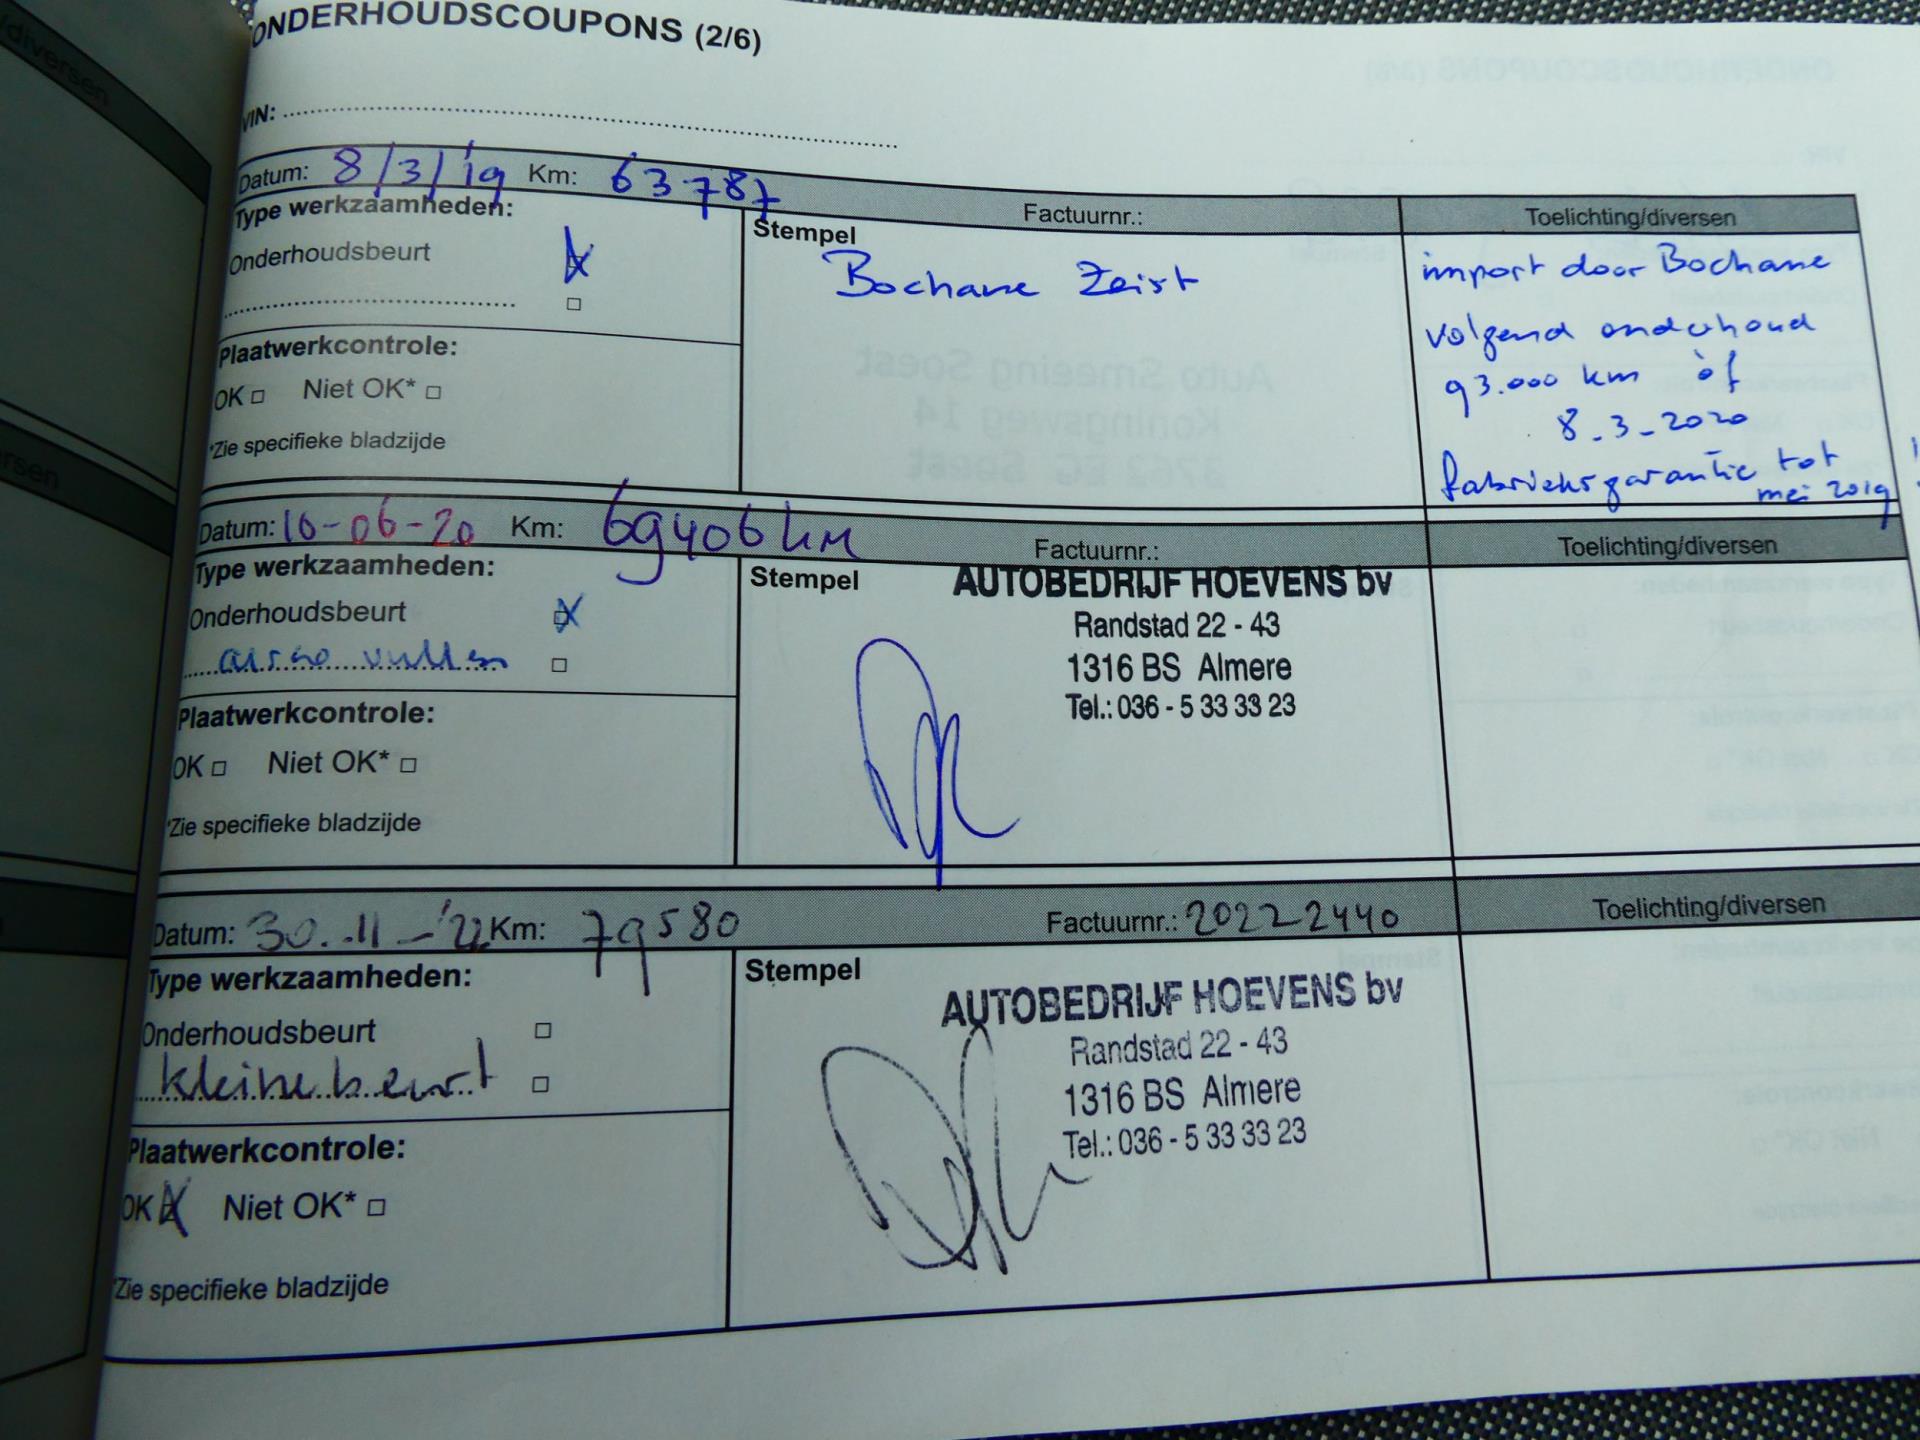 ONDERHOUDSCOUPONS (2/6)
VIN:
Datum: 8/3/'19 Km: 63787
Factuurnr.:
Toelichting/diversen
Type werkzaamheden:
Onderhoudsbeurt
Plaatwerkcontrole:
OK Niet OK*
*Zie specifieke bladzijde
Stempel
Bochane Zeist
import door Bochane
volgend onderhoud
93.000 km óf
8-3-2020
fabrieksgarantie tot
mei 2019
Datum: 16-06-20 Km: 69406 km
Factuurnr.:
Toelichting/diversen
Type werkzaamheden:
Onderhoudsbeurt
airco vullen
Plaatwerkcontrole:
OK Niet OK*
*Zie specifieke bladzijde
Stempel
AUTOBEDRIJF HOEVENS bv
Randstad 22 - 43
1316 BS Almere
Tel.: 036 - 5 33 33 23
Datum: 30-11-'22 Km: 79580
Factuurnr.: 2022-2440
Toelichting/diversen
Type werkzaamheden:
Onderhoudsbeurt
kleine beurt
Plaatwerkcontrole:
OK Niet OK*
*Zie specifieke bladzijde
Stempel
AUTOBEDRIJF HOEVENS bv
Randstad 22 - 43
1316 BS Almere
Tel.: 036 - 5 33 33 23
/diversen